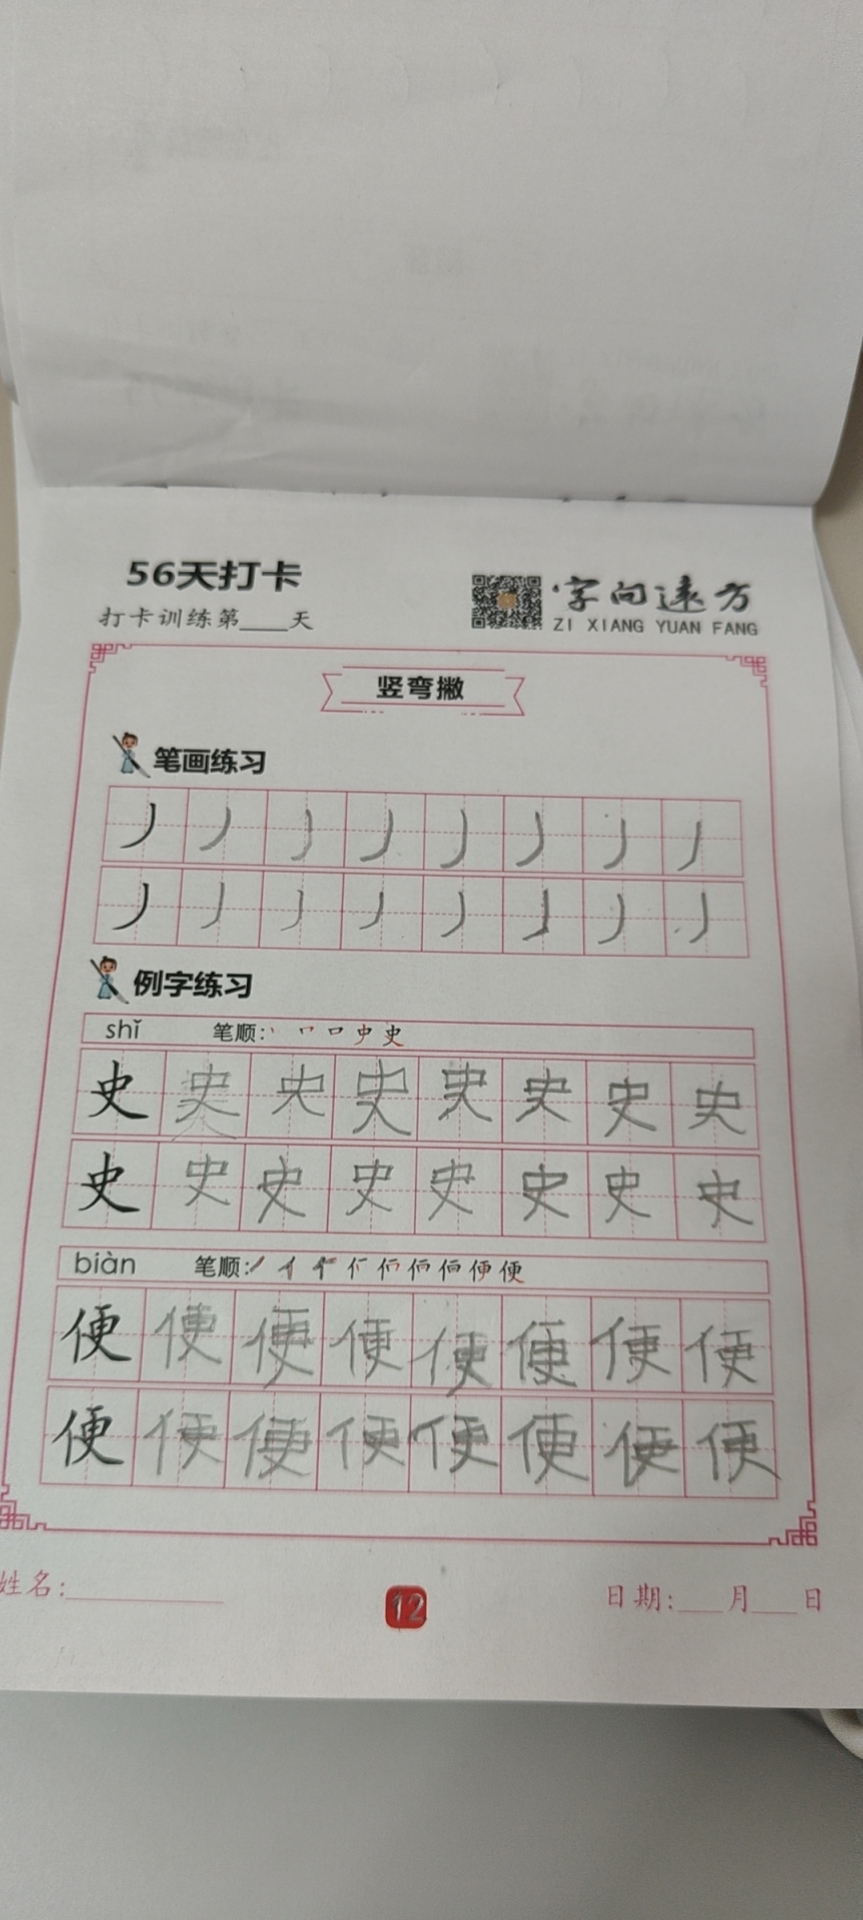 56天打卡
字向远方
打卡训练第____天
ZI XIANG YUAN FANG
竖弯撇
笔画练习
丿 丿 丿 丿 丿 丿 丿 丿
丿 丿 丿 丿 丿 丿 丿 丿
例字练习
shǐ 笔顺: 丨 𠃍 口 史 史
史 史 史 史 史 史 史 史
史 史 史 史 史 史 史 史
biàn 笔顺: 便
便 便 便 便 便 便 便 便
便 便 便 便 便 便 便 便
姓名:
12
日期:___月___日